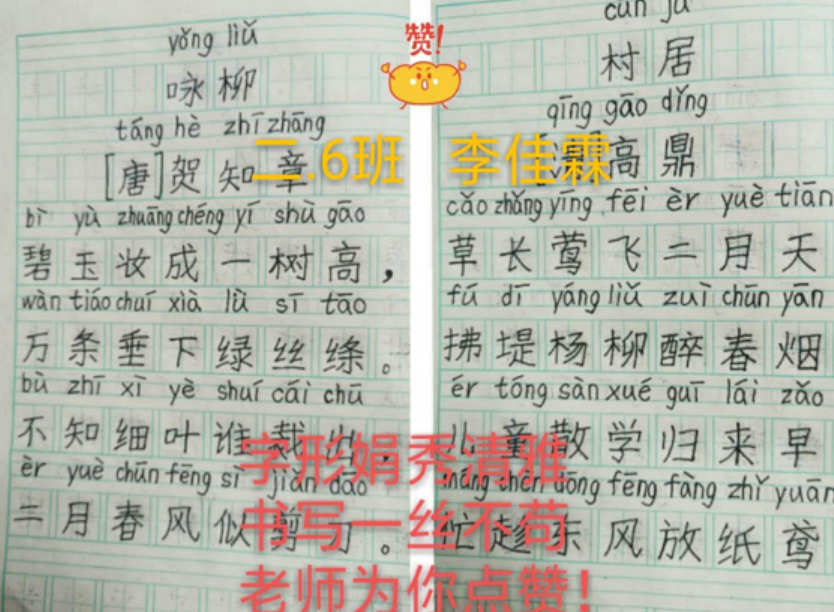 yǒng liǔ
咏柳
táng hè zhī zhāng
[唐]贺知章
bì yù zhuāng chéng yī shù gāo
碧玉妆成一树高，
wàn tiáo chuí xià lǜ sī tāo
万条垂下绿丝绦。
bù zhī xì yè shuí cái chū
不知细叶谁裁出，
èr yuè chūn fēng sì jiǎn dāo
二月春风似剪刀。
赞!
cūn jū
村居
qīng gāo dǐng
高鼎
cǎo zhǎng yīng fēi èr yuè tiān
草长莺飞二月天
fú dī yáng liǔ zuì chūn yān
拂堤杨柳醉春烟
ér tóng sàn xué guī lái zǎo
儿童散学归来早
máng chèn dōng fēng fàng zhǐ yuān
忙趁东风放纸鸢
二.6班 李佳霖
字形娟秀清雅
书写一丝不苟
老师为你点赞!